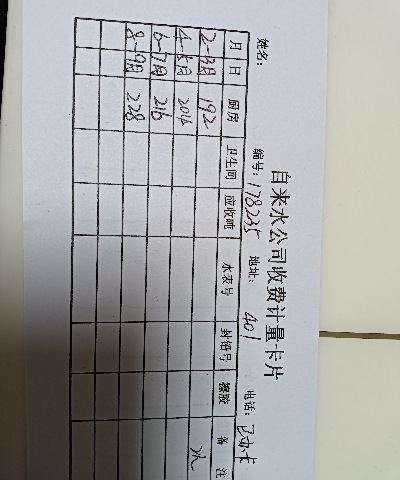 自来水公司收费计量卡片
姓名： 编号：178235 地址：401 电话：
月 日 厨房 卫生间 应收吨 水表号 封铅号 擦胶 备注
2-3月 192
4-5月 204
6-7月 216
8-9月 228